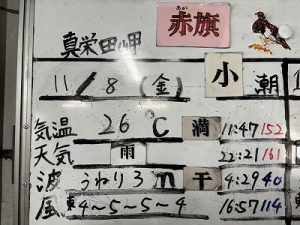 赤旗
あか
真栄田岬
11/8(金) 小潮
気温 26℃ 満 11:47 152
天気 雨 22:21 161
波 うねり3m 干 4:29 40
風 東4~5~5~4 16:57 114